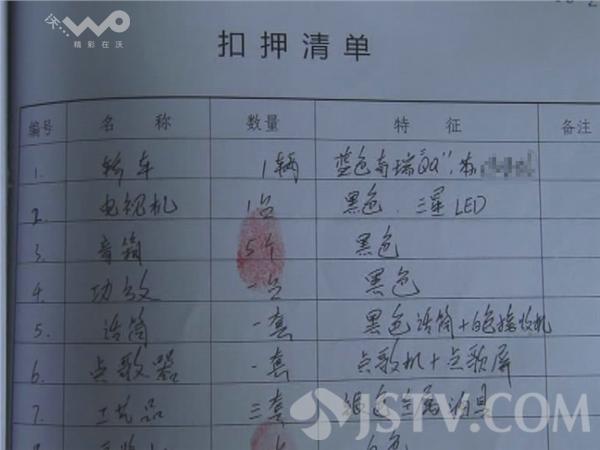 沃... wo
精彩在沃
扣押清单
编号 名称 数量 特征 备注
1. 轿车 1辆 蓝色奇瑞"QQ",
2. 电视机 1台 黑色、三星LED
3. 音箱 5个 黑色
4. 功放 一台 黑色
5. 话筒 一套 黑色话筒+白色接收机
6. 点歌器 一套 点歌机+点歌屏
7. 工艺品 三套 银色金属酒具
JSTV.COM